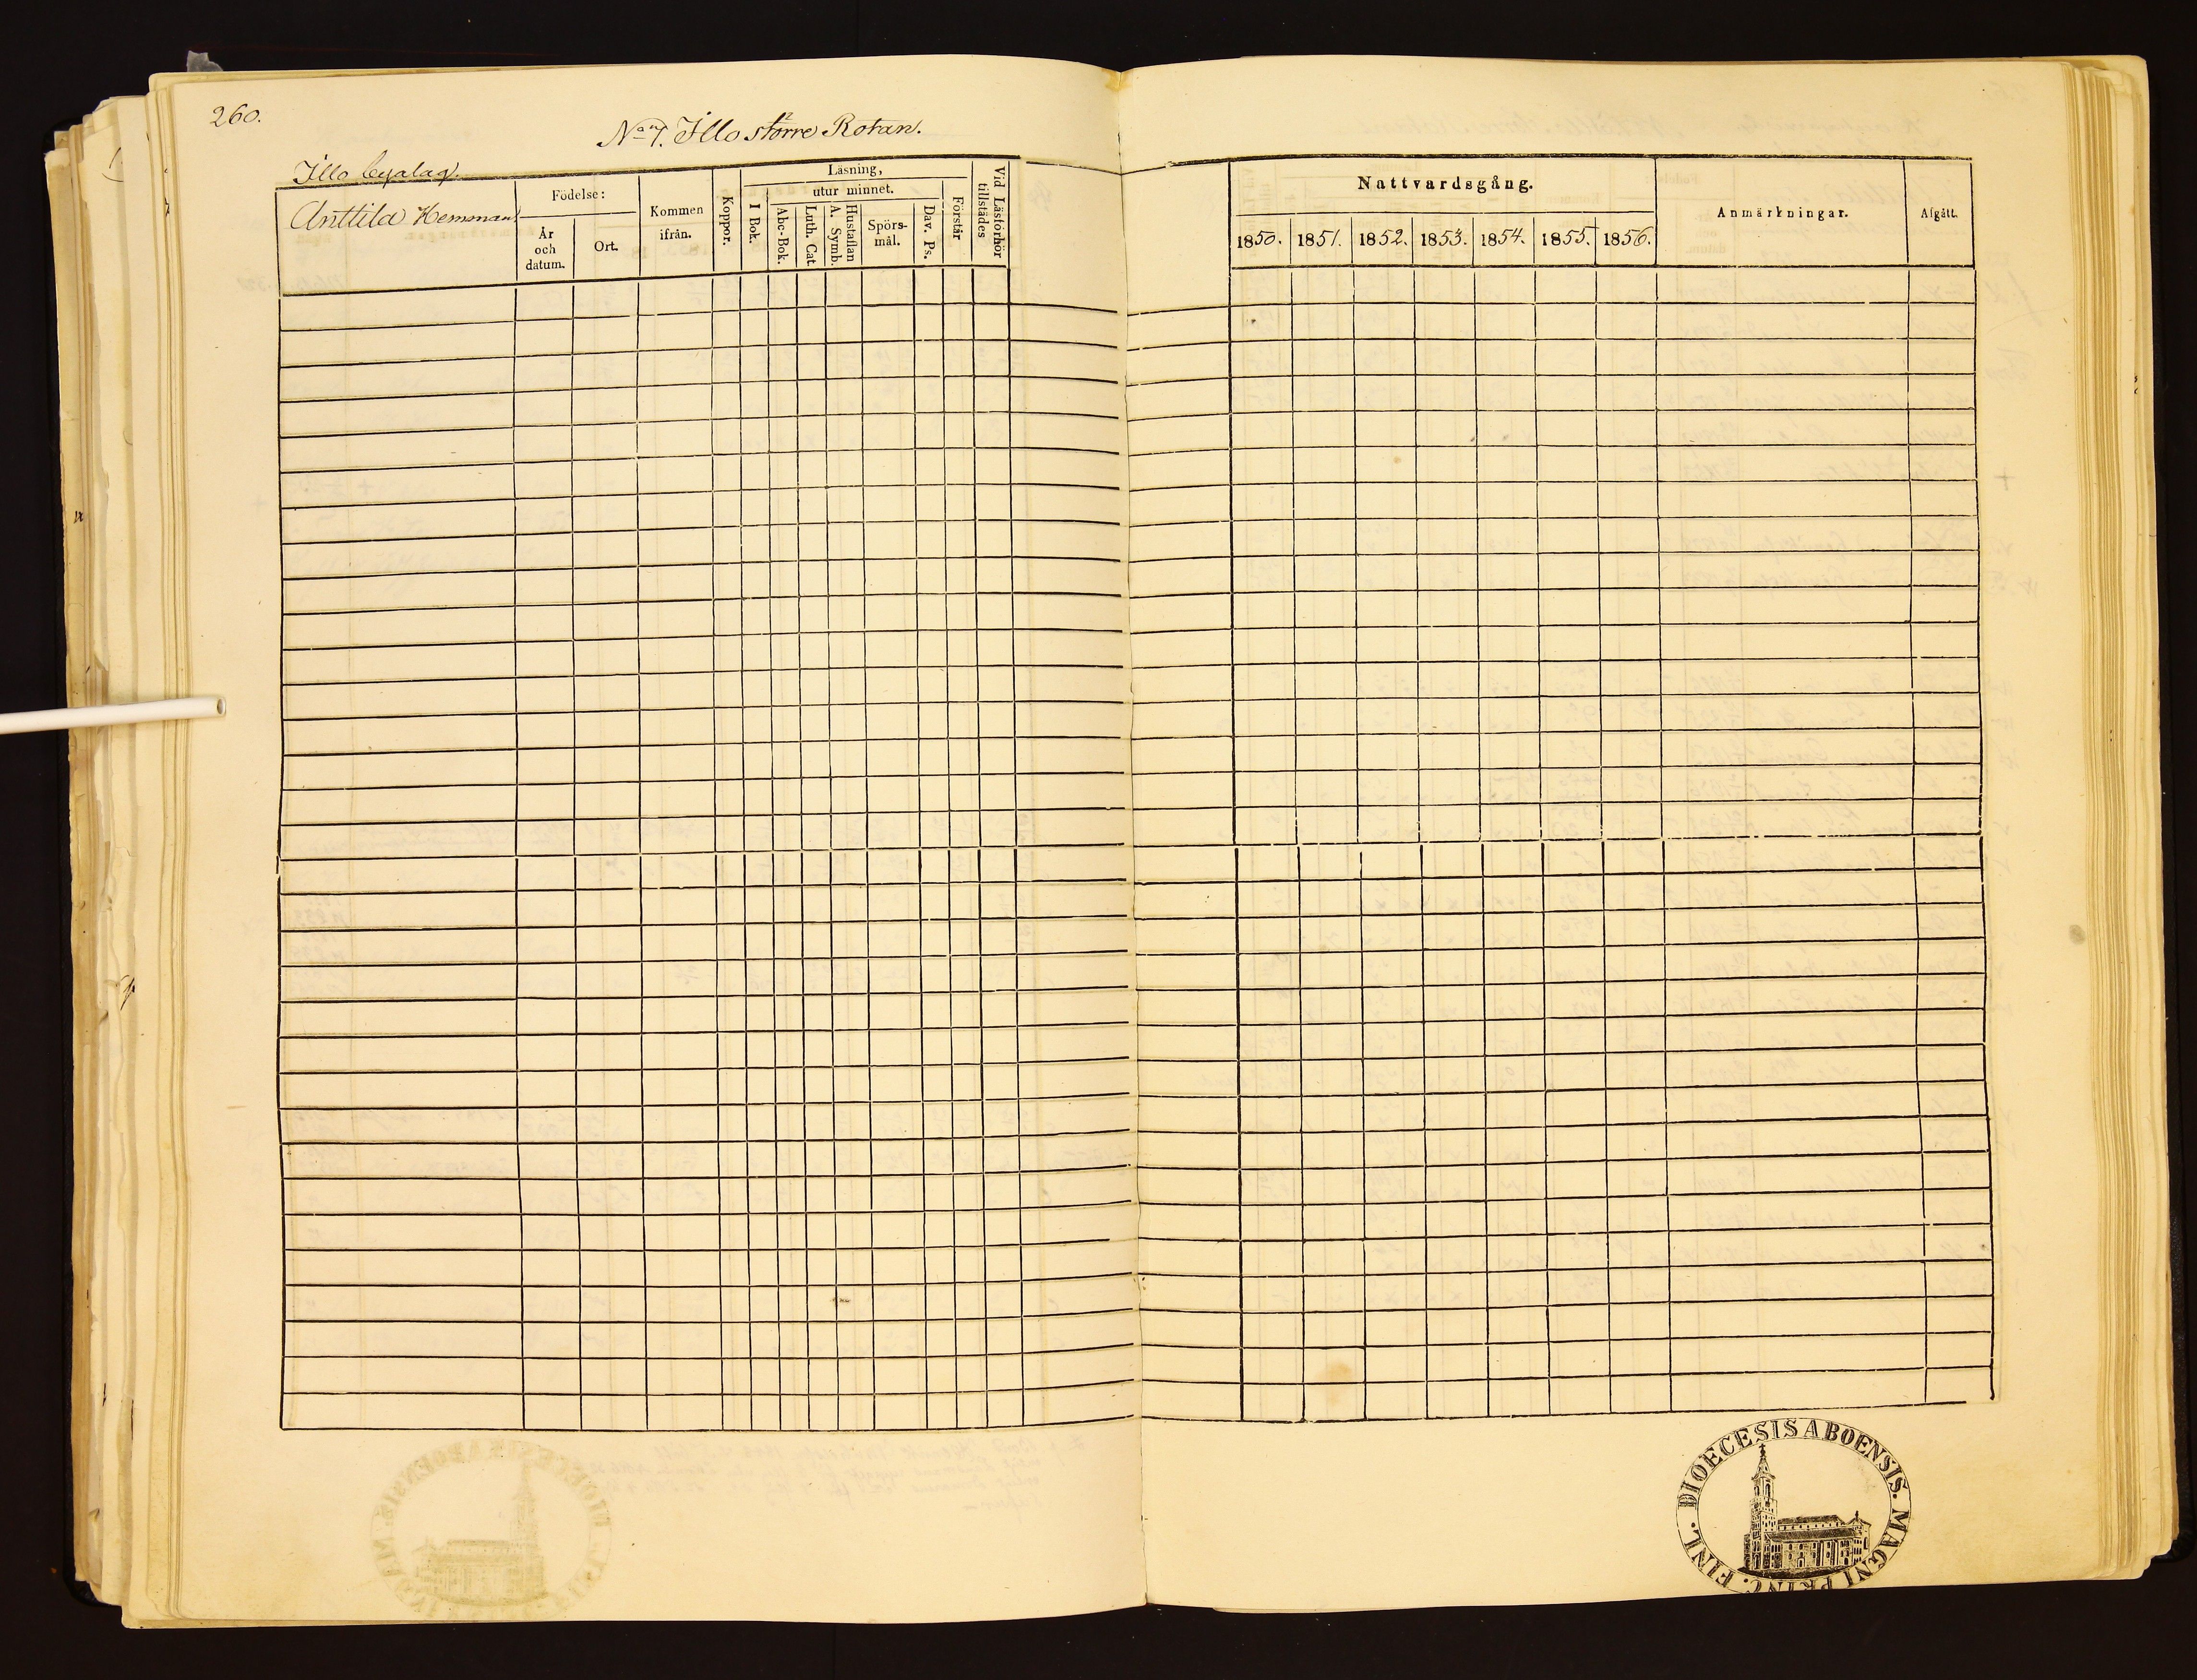 260.
No 7. Illo större Rotan.
Illo byalag.
Anttila Hemman
Födelse:
År
och
datum.
Ort.
Kommen
ifrån.
Koppor.
Läsning,
I Bok.
utur minnet.
Abc-Bok.
Luth. Cat.
Hustaflan
A. Symb.
Spörs-
mål.
Dav. Ps.
Förstår
Vid Läsförhör
tillstädes
Nattvardsgång.
1850. 1851. 1852. 1853. 1854. 1855. 1856.
Anmärkningar.
Afgått.
DIOECESIS ABOENSIS. MAGNI PRINC. FINL.